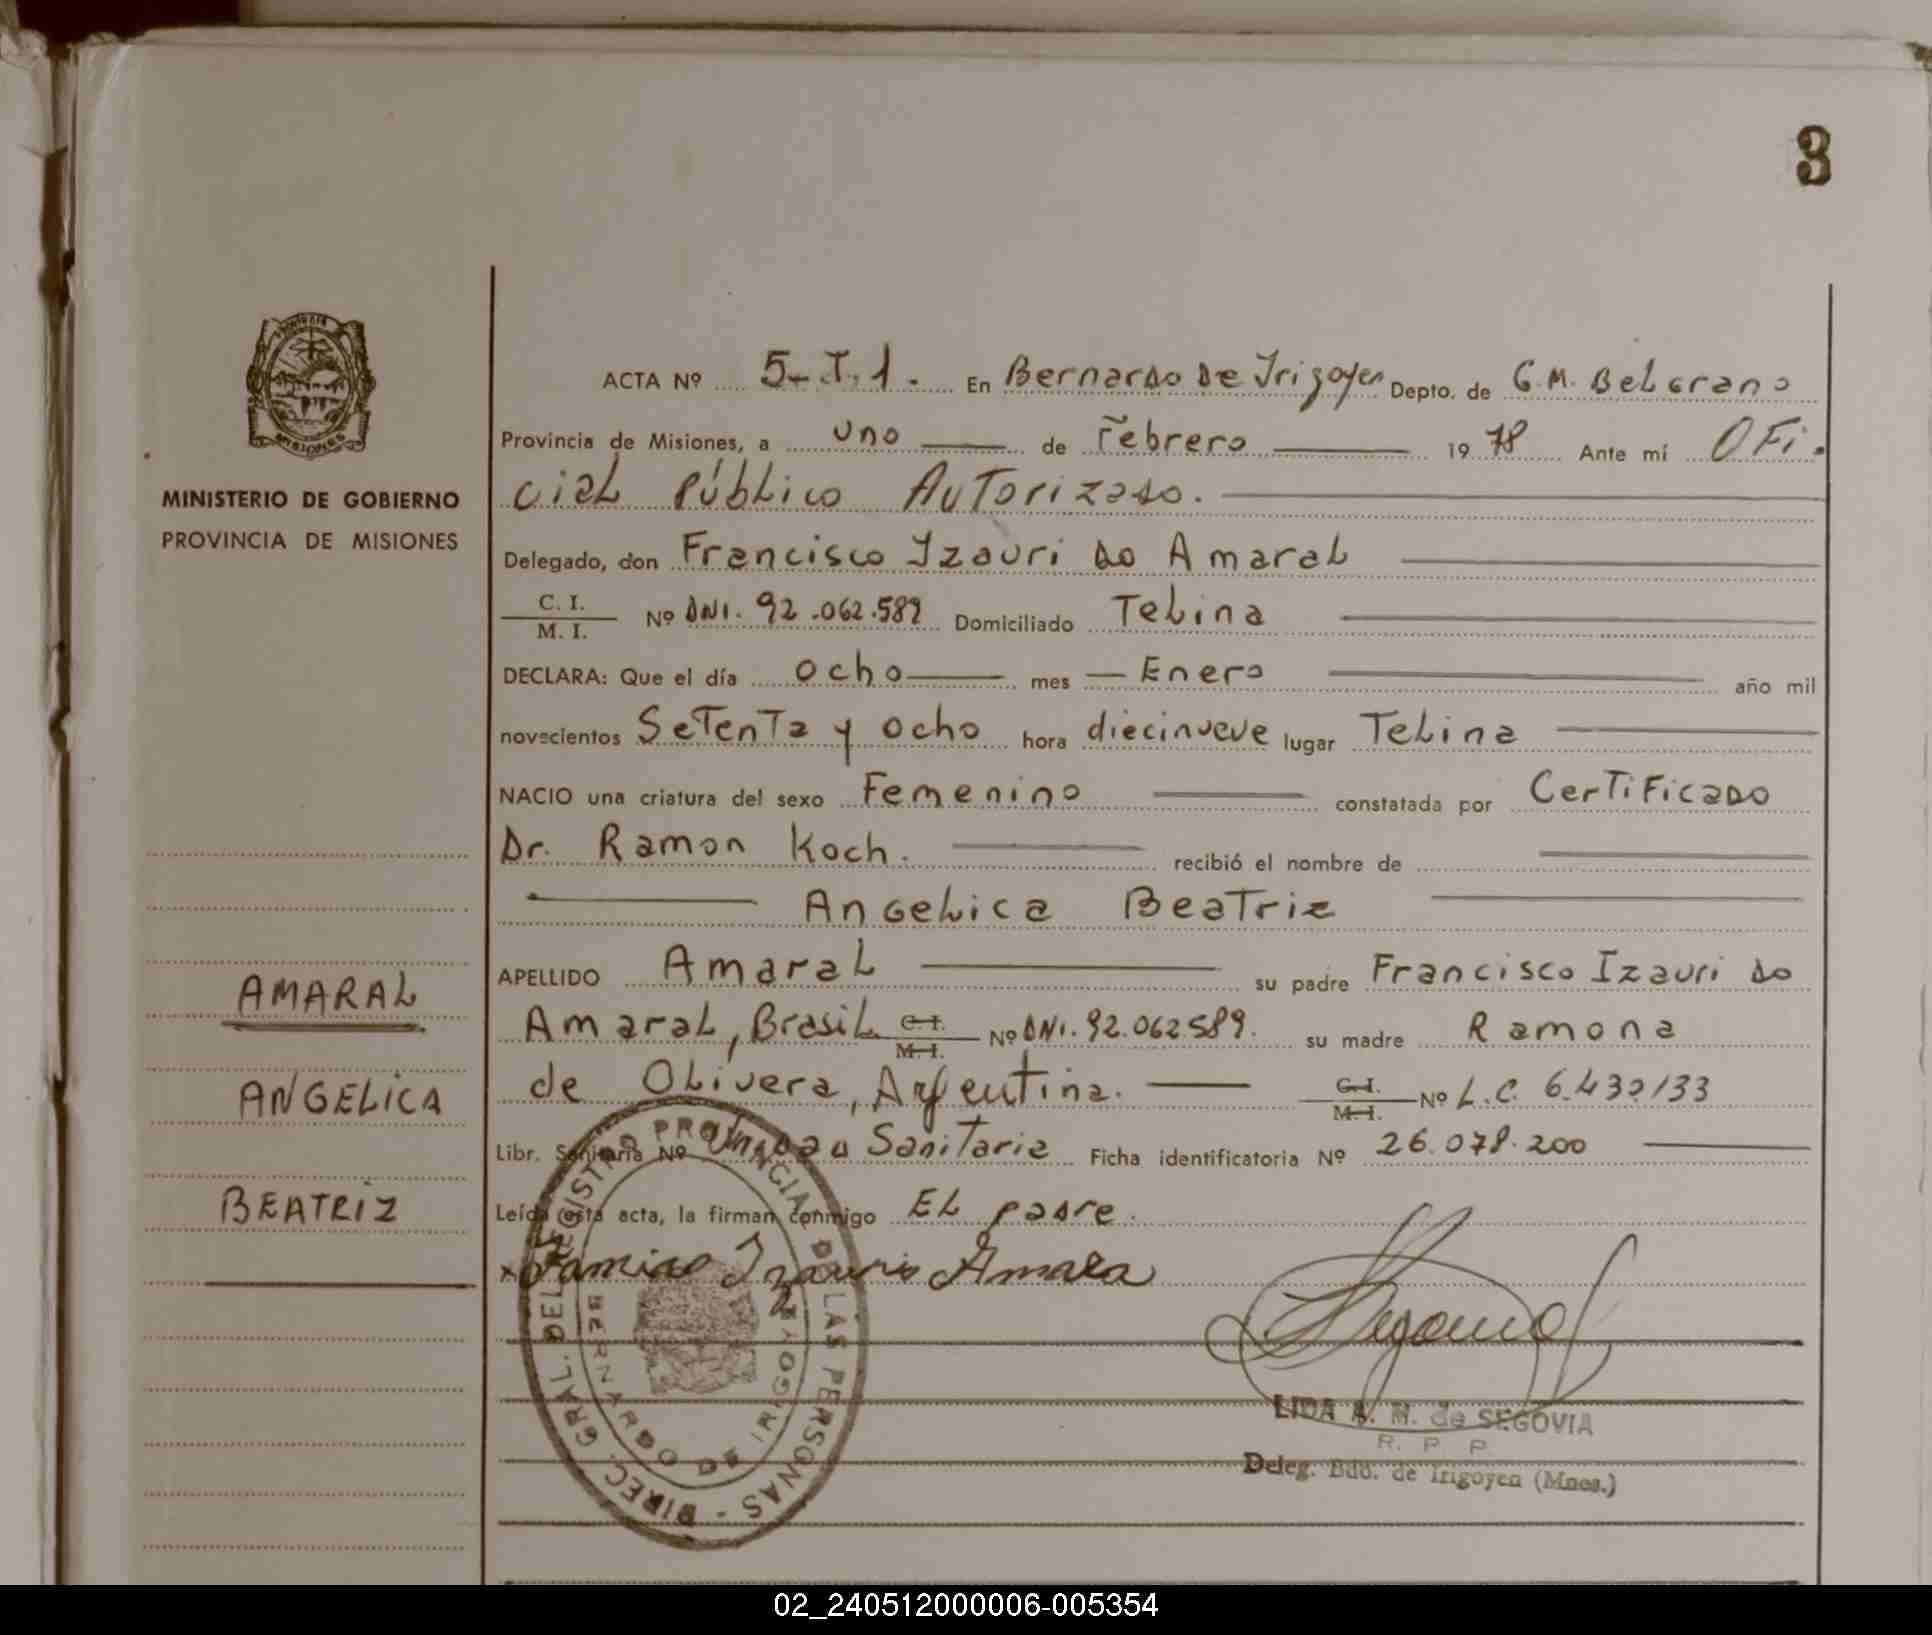 3
ACTA Nº 5-T.1. En Bernardo de Irigoyen Depto. de G.M. Belgrano
Provincia de Misiones, a uno de Febrero 1978 Ante mí Ofi.
cial Público Autorizado.
MINISTERIO DE GOBIERNO
PROVINCIA DE MISIONES
MISIONES
Delegado, don Francisco Izauri do Amaral
C. I.
M. I. Nº DNI. 92.062.589 Domiciliado Telina
DECLARA: Que el día ocho mes Enero año mil
novecientos Setenta y ocho hora diecinueve lugar Telina
NACIO una criatura del sexo Femenino constatada por Certificado
Dr. Ramon Koch. recibió el nombre de
Angelica Beatriz
APELLIDO Amaral su padre Francisco Izauri do
Amaral, Brasil C. I. M. I. Nº DNI. 92.062.589. su madre Ramona
de Olivera, Argentina. C. I. M. I. Nº L.C. 6.430133
Libr. Sanitaria Nº Unidad Sanitaria Ficha identificatoria Nº 26.078.200
Leída esta acta, la firman conmigo El padre.
AMARAL
ANGELICA
BEATRIZ
Izauri Amara
DIREC. GRAL. DEL REGISTRO PROVINCIAL DE LAS PERSONAS -
BERNARDO DE IRIGOYEN
LIDA A. M. de SEGOVIA
R. P. P.
Deleg. Bdo. de Irigoyen (Mnes.)
02_240512000006-005354